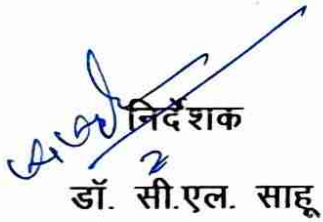 निर्देशक
डॉ. सी.एल. साहू